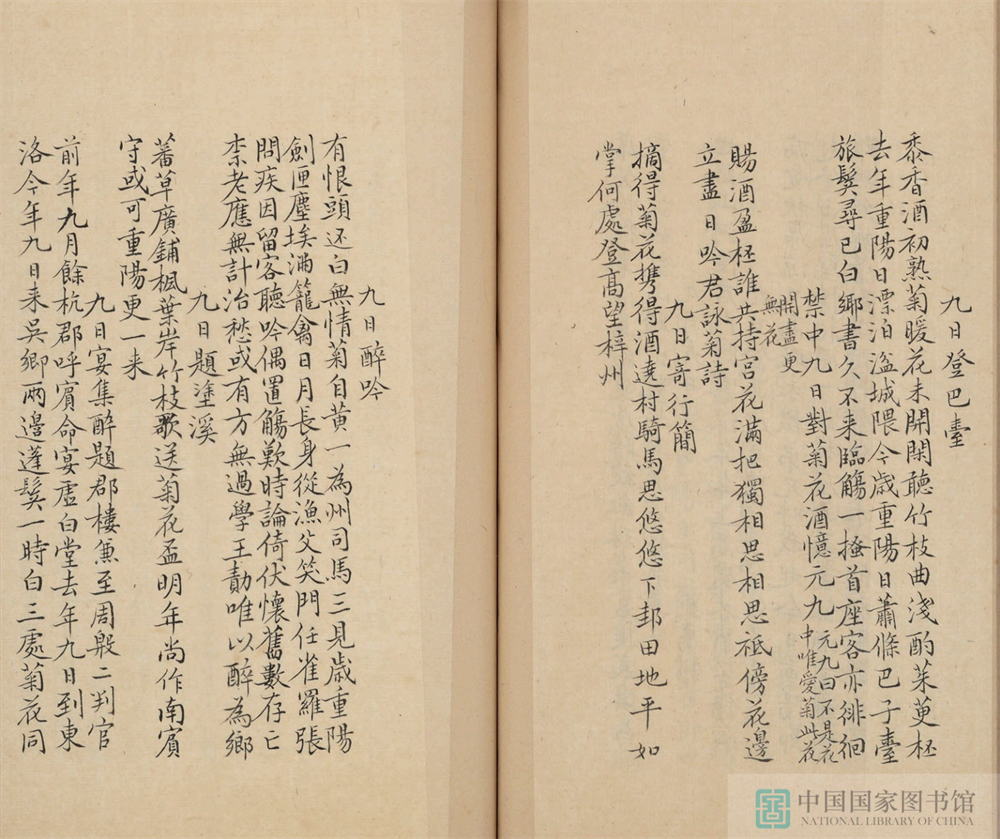 九日登巴臺
黍香酒初熟菊暖花未開閑聽竹枝曲淺酌茱萸柸
去年重陽日漂泊湓城隈今歲重陽日蕭條巴子臺
旅鬓尋已白鄉書久不來臨觴一搔首座客亦徘徊
禁中九日對菊花酒憶元九元九曰不是花中唯愛菊此花
開盡更無花
賜酒盈柸誰共持宮花滿把獨相思相思秖傍花邊
立盡日吟君詠菊詩
九日寄行簡
摘得菊花攜得酒遶村騎馬思悠悠下邽田地平如
掌何處登高望梓州
九日醉吟
有恨頭还白無情菊自黄一為州司馬三見歲重陽
劍匣塵埃滿籠禽日月長身從漁父笑門任雀羅張
問疾因留客聽吟偶置觴歎時論倚伏懷舊數存亡
柰老應無計治愁或有方無過學王勣唯以醉為鄉
九日題塗溪
蕃草廣鋪楓葉岸竹枝歌送菊花盃明年尚作南賓
守或可重陽更一来
九日宴集醉題郡樓兼至周殷二判官
前年九月餘杭郡呼賓命宴虛白堂去年九日到東
洛今年九日来吳鄉兩邊蓬鬓一時白三處菊花同
中国国家图书馆
NATIONAL LIBRARY OF CHINA